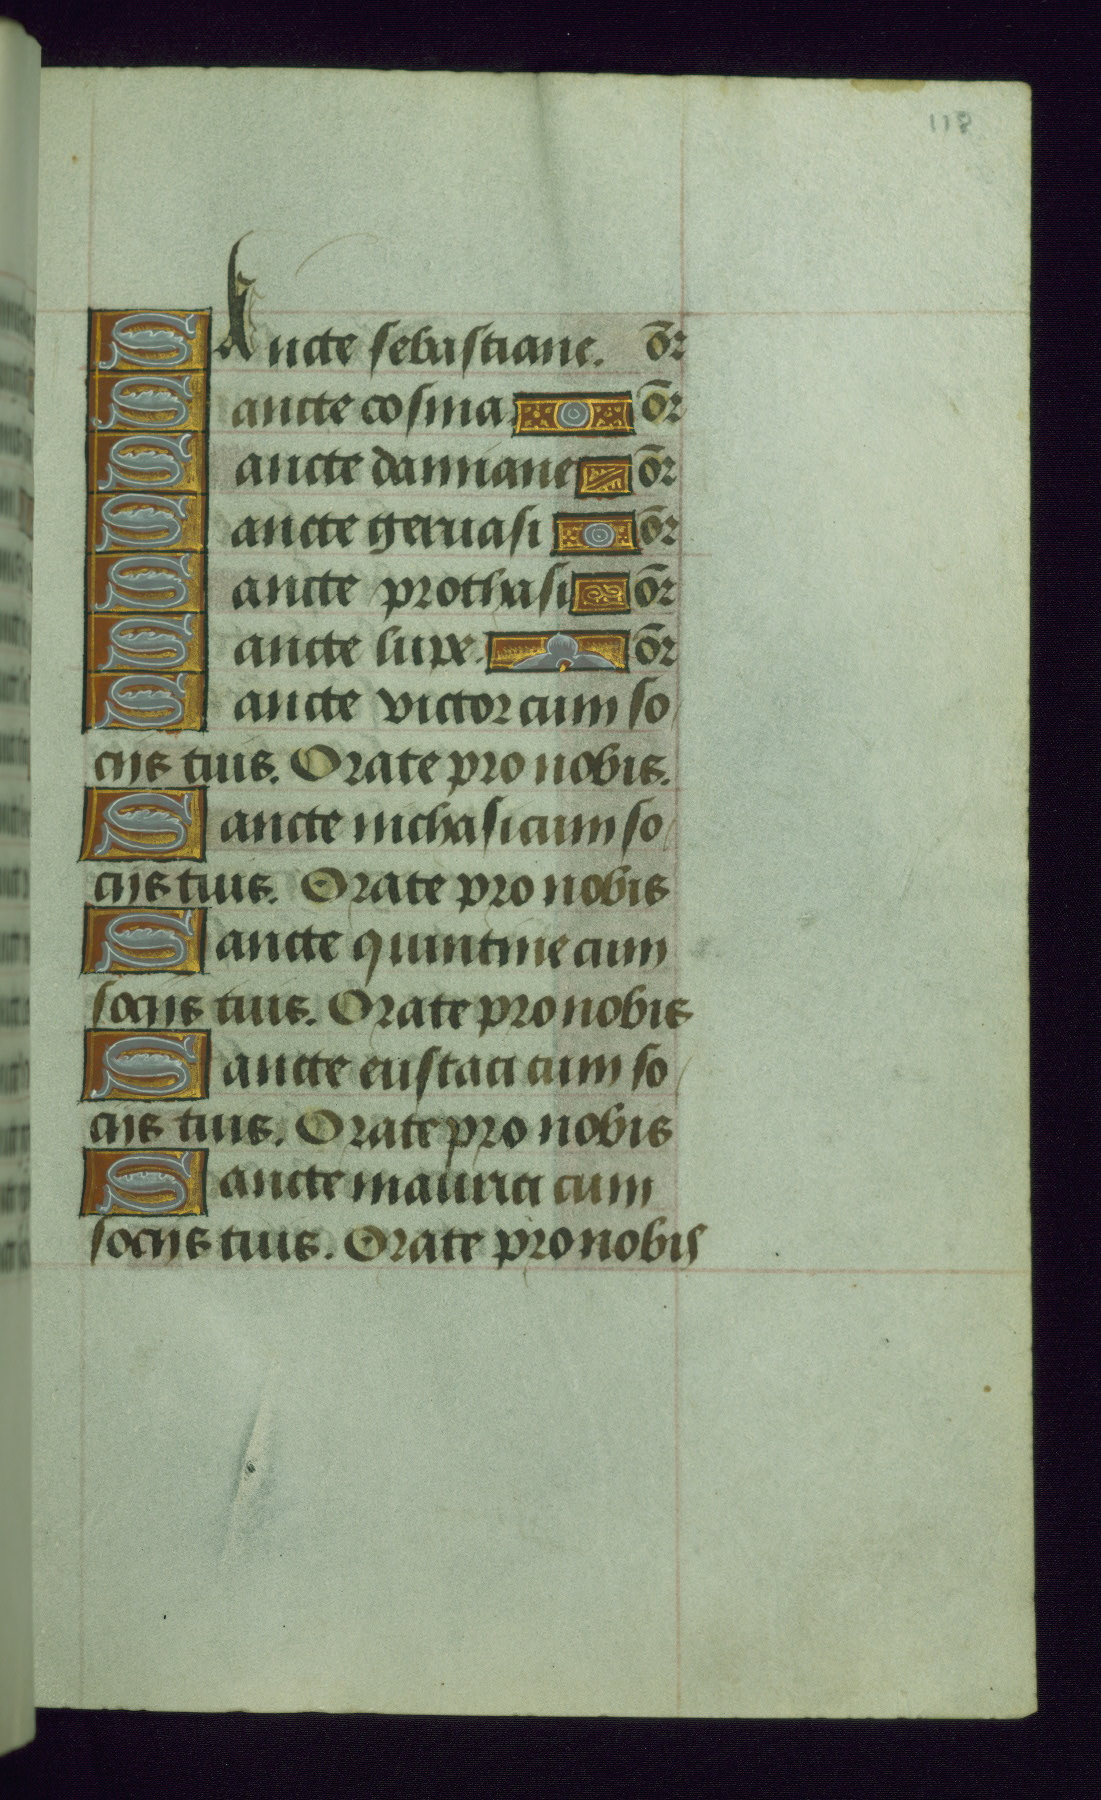 118
SAncte sebastiane. or̄
Sancte cosma or̄
Sancte damiane or̄
Sancte geruasi or̄
Sancte prothasi or̄
Sancte lupe. or̄
Sancte victor cum so
cijs tuis. Orate pro nobis.
Sancte nichasi cum so
cijs tuis. Orate pro nobis
Sancte quintine cum
socijs tuis. Orate pro nobis
Sancte eustaci cum so
cijs tuis. Orate pro nobis
Sancte maurici cum
socijs tuis. Orate pro nobis